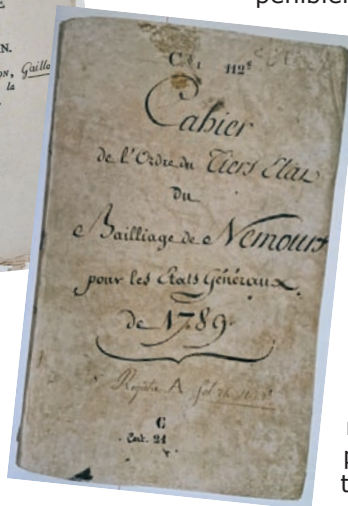 pénible
N.
ON, Gaill
la
C. 1 112e
Cahier
de l'Ordre du Tiers Etat
Du
Bailliage de Nemours
pour les Etats Généraux
de 1789.
Registre A
C
Cart. 21